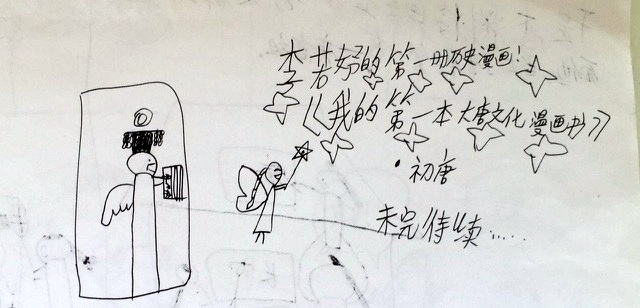 李若好的第一册历史漫画!
《我的第一本大唐文化漫画书》
·初唐
未完待续.....